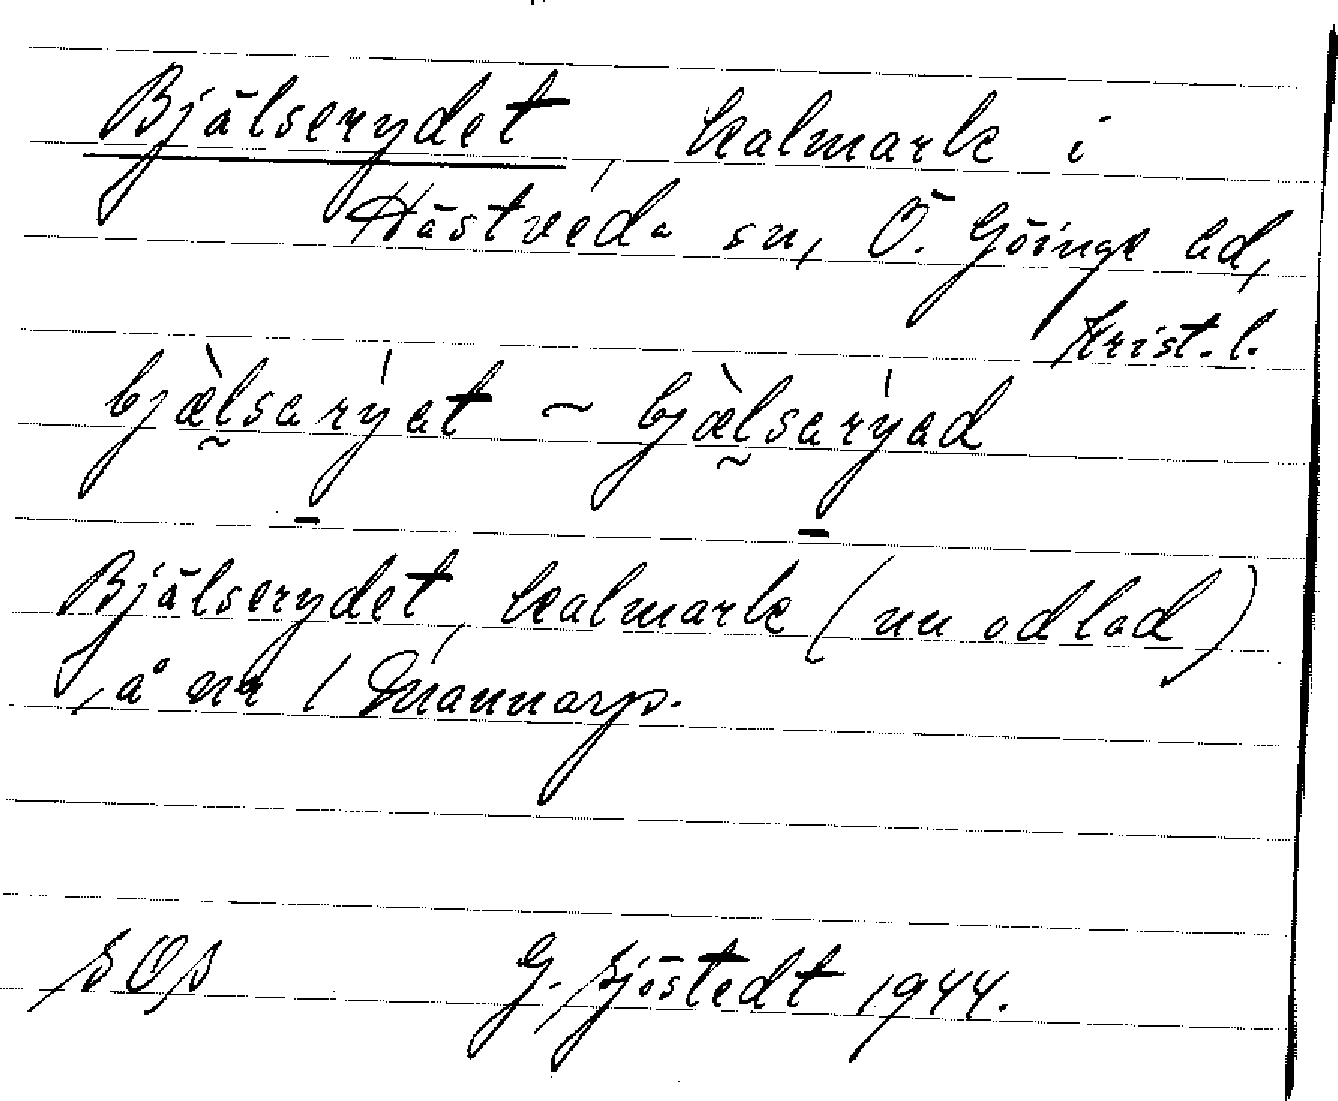 Bjälserydet, kalmark i
Hästveda sn, Ö. Göinge hd,
Krist. l.
bjæ̀lsarýat ~ bjæ̀lsarýad
Bjälserydet, kalmark (nu odlad)
å nr 1 Mannarp.
SOS G. Sjöstedt 1944.